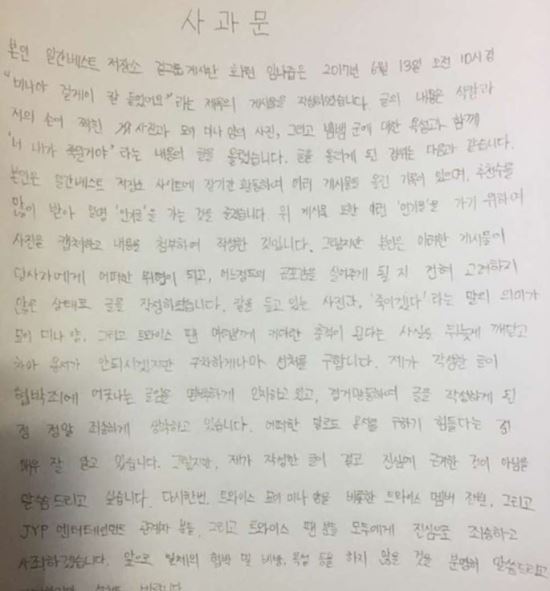 사과문
본인 일간베스트 저장소 걸그룹게시판 회원 은 2017년 6월 13일 오전 10시경
"미나야 걸게이 칼 들었어요"라는 제목의 게시글을 작성하였습니다. 글의 내용은 사람과
저의 손에 찍힌 사진과 모이 미나 양의 사진, 그리고 뱀뱀 군에 대한 욕설과 함께
'너 내가 죽일거야' 라는 내용의 글을 올렸습니다. 글을 올리게 된 경위는 다음과 같습니다.
본인은 일간베스트 저장소 사이트에 장기간 활동하며 여러 게시물을 올린 기록이 있으며, 추천수를
많이 받아 일명 '인기글'을 가는 것을 즐겼습니다. 위 게시글 또한 이런 '인기글'을 가기 위하여
사진을 캡처하고 내용을 첨부하여 작성한 것입니다. 그렇지만 본인은 이러한 게시물이
당사자에게 어떠한 위협이 되고, 어느정도의 공포감을 심어주게 될 지 전혀 고려하지
않은 상태로 글을 작성하였습니다. 칼을 들고 있는 사진과, '죽이겠다' 라는 말의 의미가
모이 미나 양, 그리고 트와이스 팬 여러분께 커다란 충격이 된다는 사실을 뒤늦게 깨닫고
차마 용서가 안되시겠지만 구차하게나마 선처를 구합니다. 제가 작성한 글이
협박죄에 어긋나는 글임을 명백하게 인지하고 있고, 경거망동하여 글을 작성하게 된
점 정말 죄송하게 생각하고 있습니다. 어떠한 말로도 용서를 구하기 힘들다는 점
매우 잘 알고 있습니다. 그렇지만, 제가 작성한 글이 결코 진심에 근거한 것이 아님을
말씀드리고 싶습니다. 다시한번, 트와이스 모이 미나 양을 비롯한 트와이스 멤버 전원, 그리고
JYP 엔터테인먼트 관계자 분들, 그리고 트와이스 팬 분들 모두에게 진심으로 죄송하고
사죄하겠습니다. 앞으로 일체의 협박 및 비방, 욕설 등을 하지 않을 것을 분명히 말씀드리고